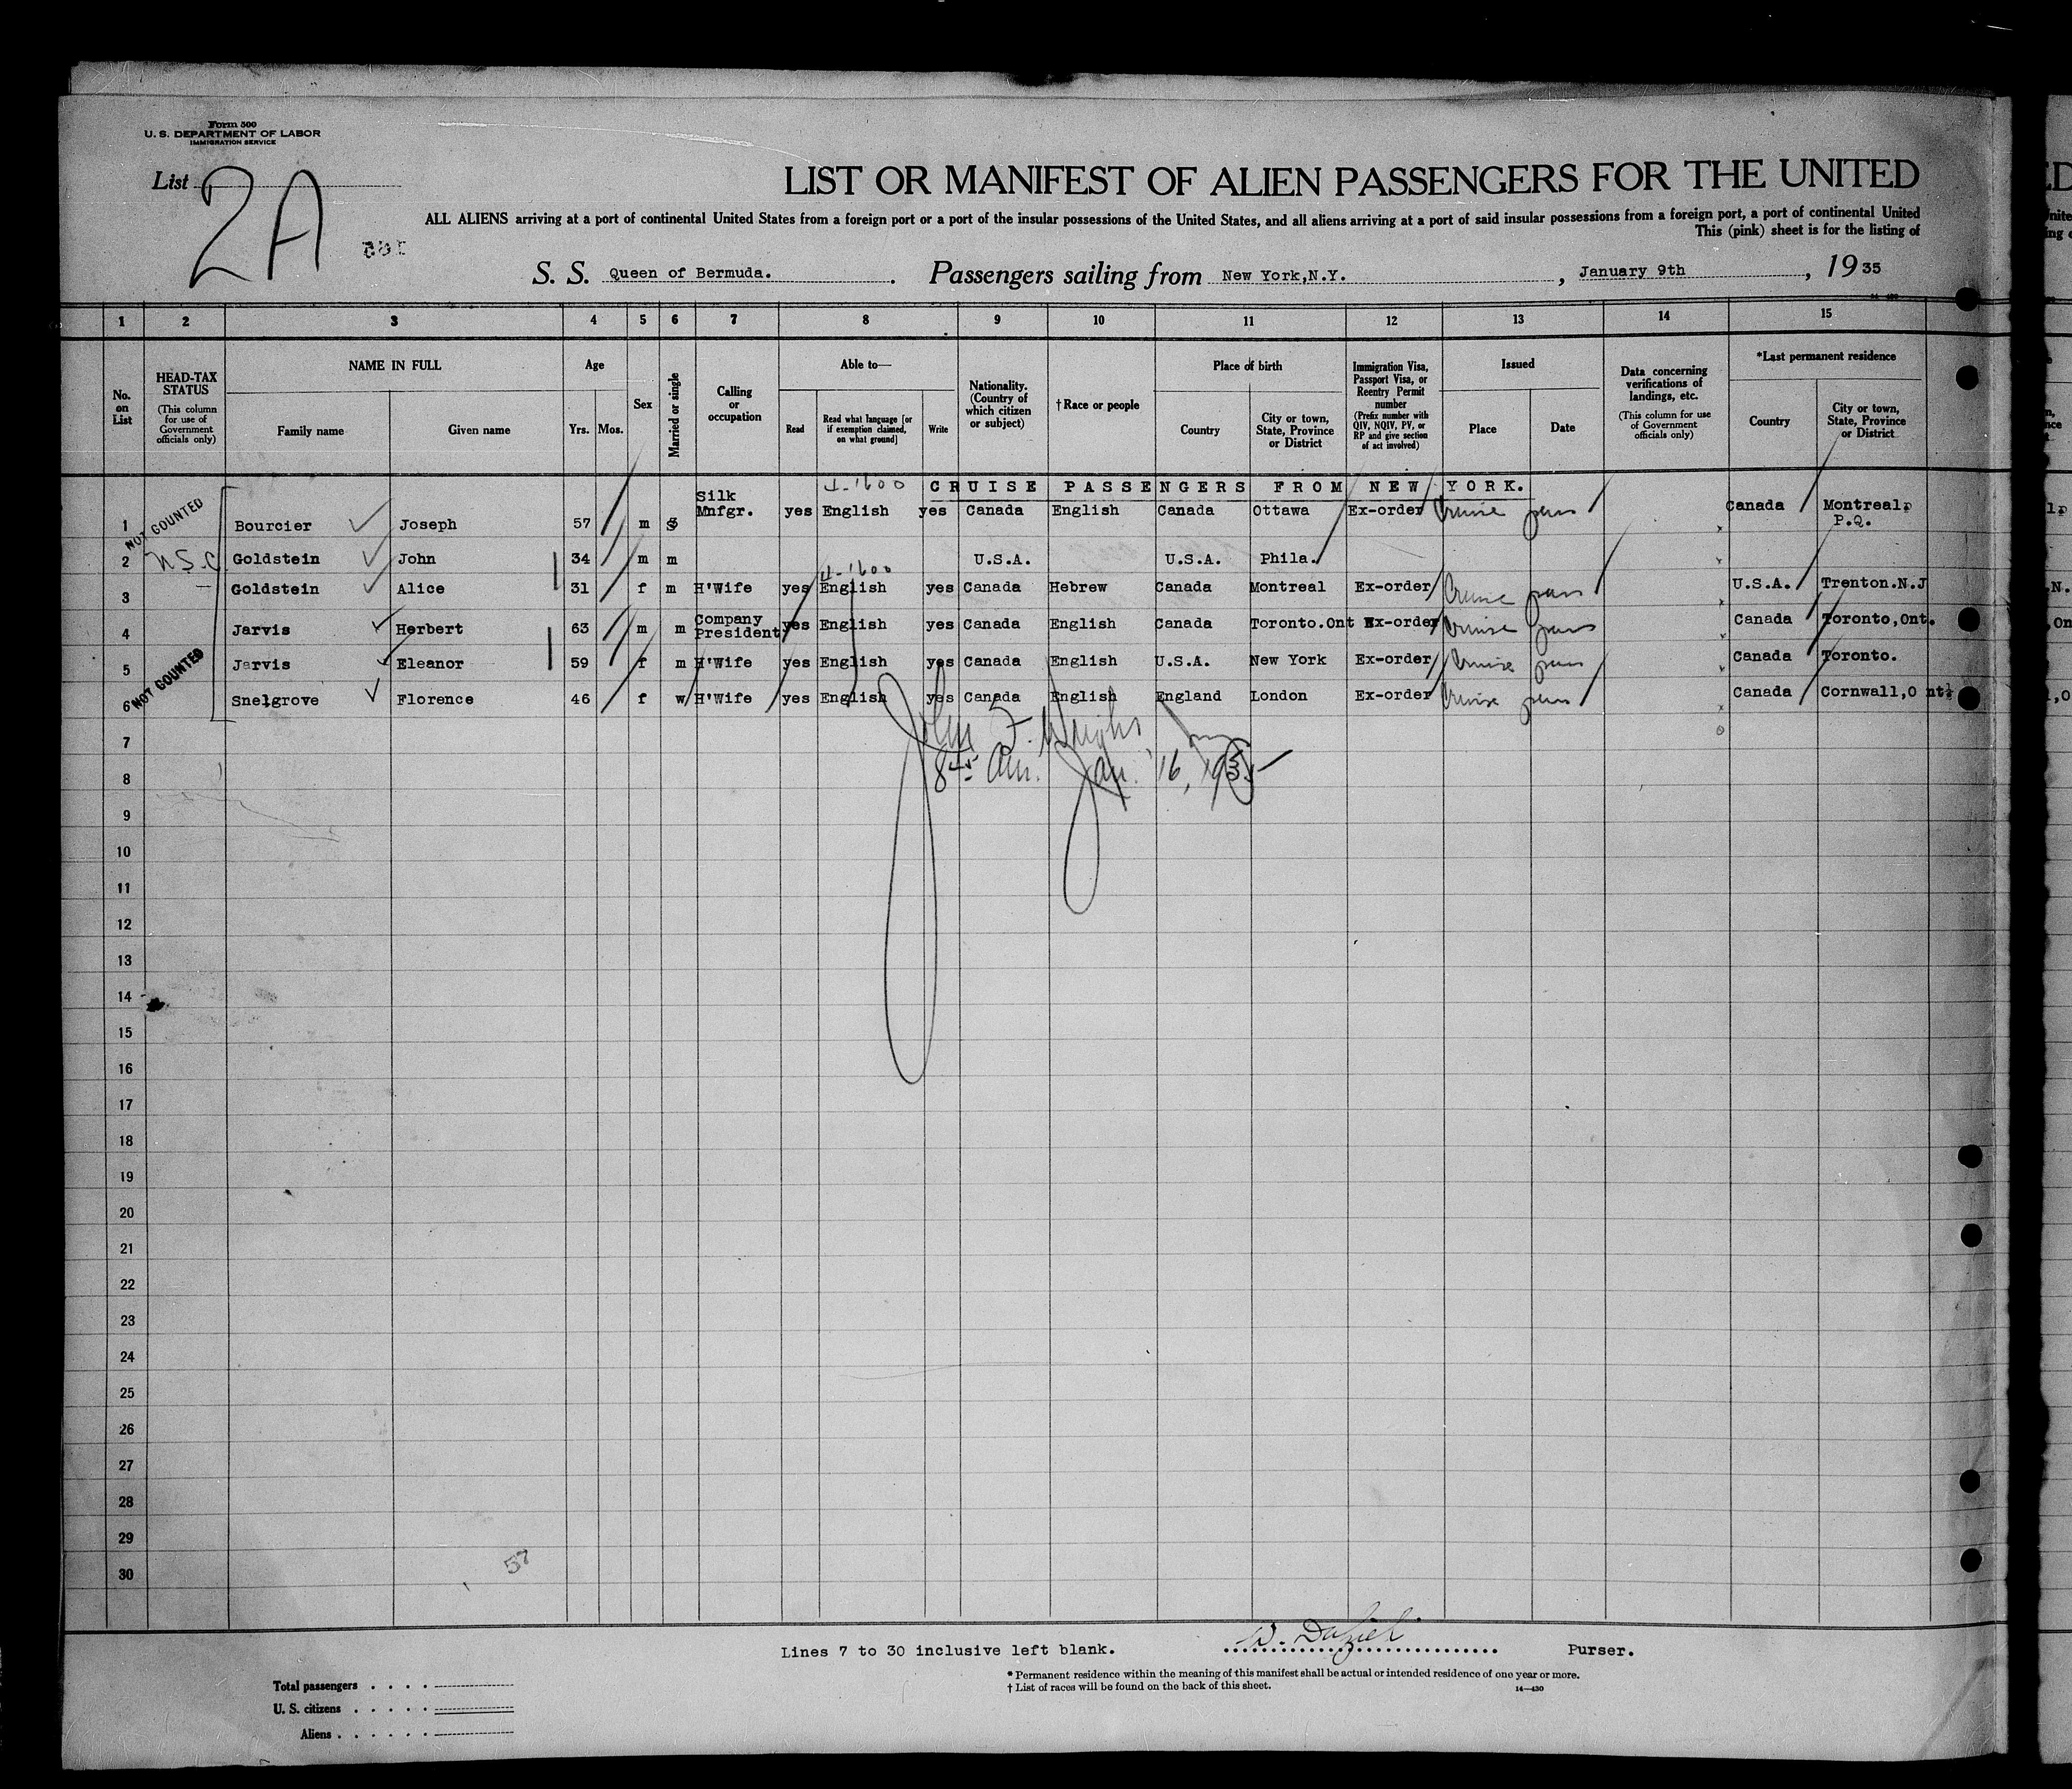 Form 500
U. S. DEPARTMENT OF LABOR
IMMIGRATION SERVICE
List 2A
LIST OR MANIFEST OF ALIEN PASSENGERS FOR THE UNITED
ALL ALIENS arriving at a port of continental United States from a foreign port or a port of the insular possessions of the United States, and all aliens arriving at a port of said insular possessions from a foreign port, a port of continental United
This (pink) sheet is for the listing of
S. S. Queen of Bermuda. Passengers sailing from New York,N.Y. , January 9th , 19 35
1 2 3 4 5 6 7 8 9 10 11 12 13 14 15
No. on List
HEAD-TAX STATUS (This column for use of Government officials only)
NAME IN FULL
Family name Given name
Age
Yrs. Mos.
Sex
Married or single
Calling or occupation
Able to—
Read Read what language [or if exemption claimed, on what ground] Write
Nationality. (Country of which citizen or subject)
† Race or people
Place of birth
Country City or town, State, Province or District
Immigration Visa, Passport Visa, or Reentry Permit number (Prefix number with QIV, NQIV, PV, or RP and give section of act involved)
Issued
Place Date
Data concerning verifications of landings, etc. (This column for use of Government officials only)
*Last permanent residence
Country City or town, State, Province or District
CRUISE PASSENGERS FROM NEW YORK.
NOT COUNTED
1 Bourcier Joseph 57 m S Silk Mnfgr. yes English yes Canada English Canada Ottawa Ex-order Cruise pass Canada Montreal, P.Q.
2 Goldstein John 34 m m U.S.A. U.S.A. Phila.
3 Goldstein Alice 31 f m H'Wife yes English yes Canada Hebrew Canada Montreal Ex-order Cruise pass U.S.A. Trenton.N.J
4 Jarvis Herbert 63 m m Company President yes English yes Canada English Canada Toronto.Ont Ex-order Cruise pass Canada Toronto,Ont.
5 Jarvis Eleanor 59 f m H'Wife yes English yes Canada English U.S.A. New York Ex-order Cruise pass Canada Toronto.
NOT COUNTED
6 Snelgrove Florence 46 f w H'Wife yes English yes Canada English England London Ex-order Cruise pass Canada Cornwall,O nt.
7
Jan. 16, 1935
8
9
10
11
12
13
14
15
16
17
18
19
20
21
22
23
24
25
26
27
28
29
30
57
Lines 7 to 30 inclusive left blank. Purser.
* Permanent residence within the meaning of this manifest shall be actual or intended residence of one year or more.
† List of races will be found on the back of this sheet. 14—430
Total passengers
U. S. citizens
Aliens